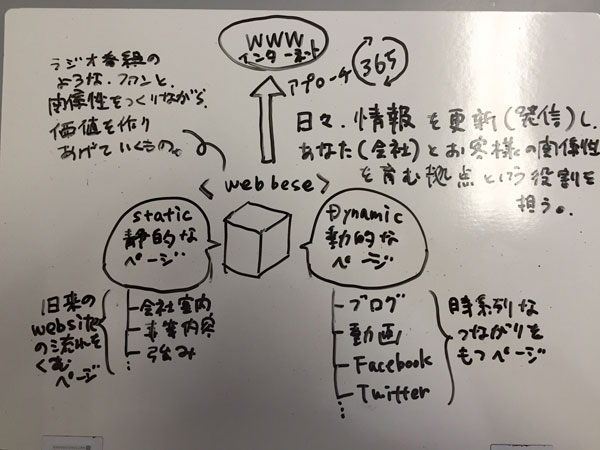 WWW
インターネット
アプローチ
365
ラジオ番組の
ような、ファンと、
関係性をつくりながら、
価値を作り
あげていくもの。
日々、情報を更新(発信)し、
あなた(会社)とお客様の関係性
を育む拠点という役割を
担う。
<webbese>
static
静的な
ページ
Dynamic
動的な
ページ
旧来の
website
の流れを
くむ
ページ
会社案内
事業内容
強み
ブログ
動画
Facebook
Twitter
時系列な
つながりを
もつページ